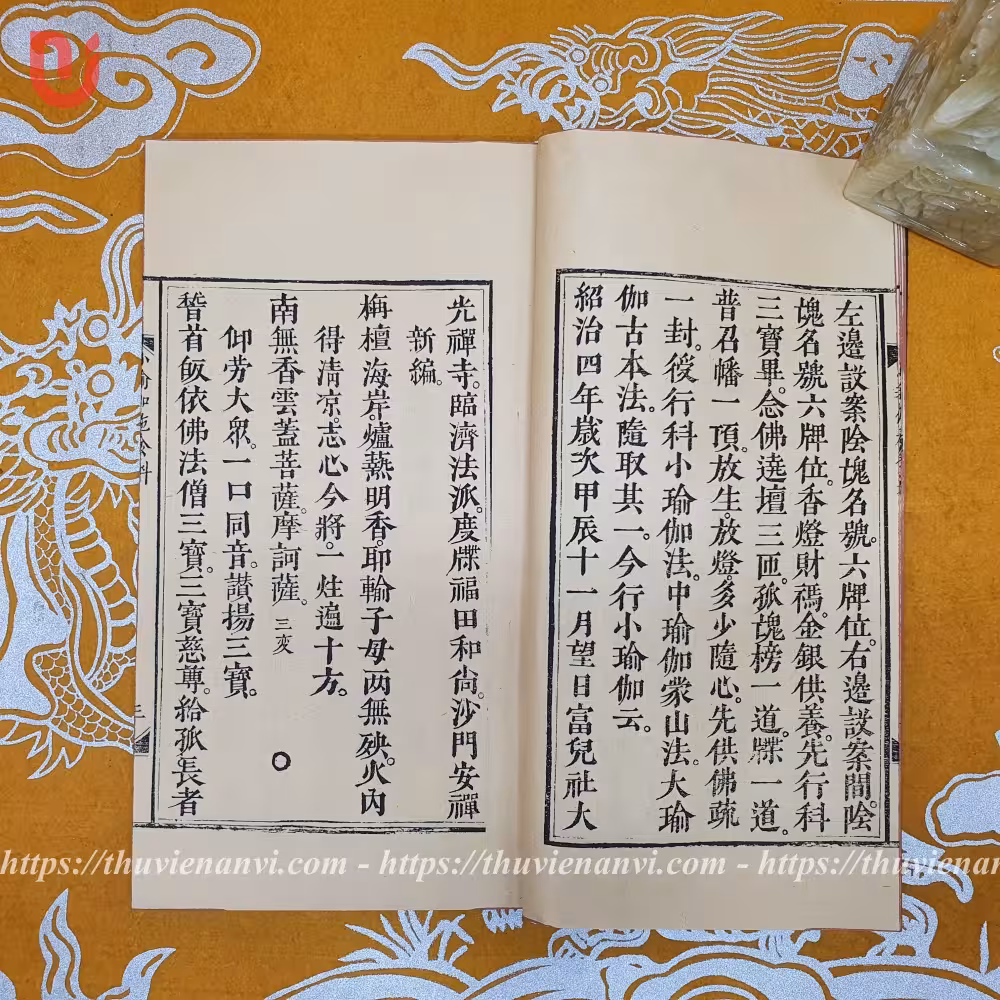 左邊設案陰塊名號。六牌位。右邊設案闇陰
塊名號六牌位。香燈財禡。金銀供養。先行科
三寶畢。念佛遶壇三匝。孤塊榜一道。牒一道。
普召幡一頂。放生。放燈。多少隨心。先供佛疏
一封。後行科小瑜伽法。中瑜伽蒙山法。大瑜
伽古本法。隨取其一。今行小瑜伽云。
紹治四年歲次甲辰十一月望日富兒社大
光禪寺。臨濟法派。度牒福田和尙。沙門安禪
新編。
栴檀海岸。爐爇明香。耶輸子母两無殃。火內
得淸凉。志心今將。一炷遍十方。
南無香雲蓋菩薩。摩訶薩。三変
仰劳大眾。一口同音。讃揚三寶。
稽首皈依佛法僧三寶。三寶慈尊。給孤長者
三
https://thuvienanvi.com - https://thuvienanvi.com - https://thuvienanvi.com